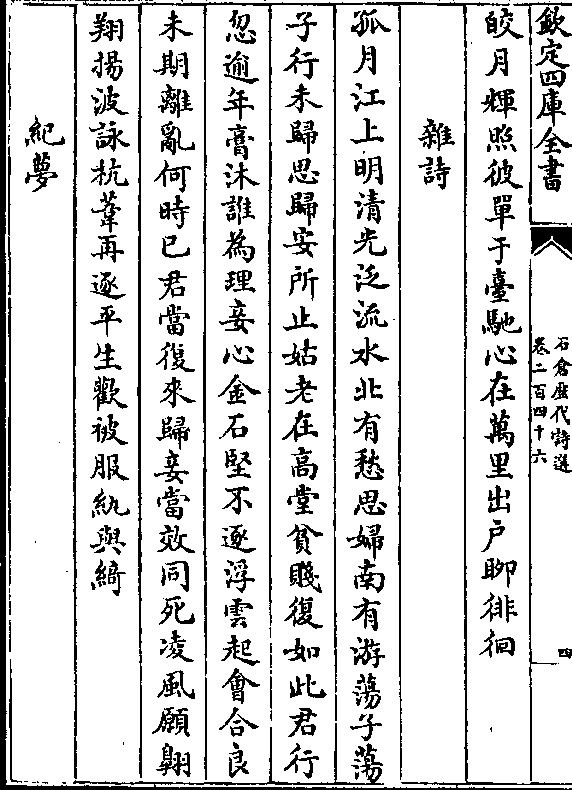 欽定四庫全書
石倉歷代詩選
卷二百四十六
四
皎月輝照彼單于臺馳心在萬里出戶聊徘徊
雜詩
孤月江上明清光泛流水北有愁思婦南有游蕩子蕩
子行未歸思歸安所止姑老在高堂貧賤復如此君行
忽逾年膏沐誰為理妾心金石堅不逐浮雲起會合良
未期離亂何時已君當復來歸妾當效同死凌風願翱
翔揚波詠杭葦再逐平生歡被服紈與綺
紀夢